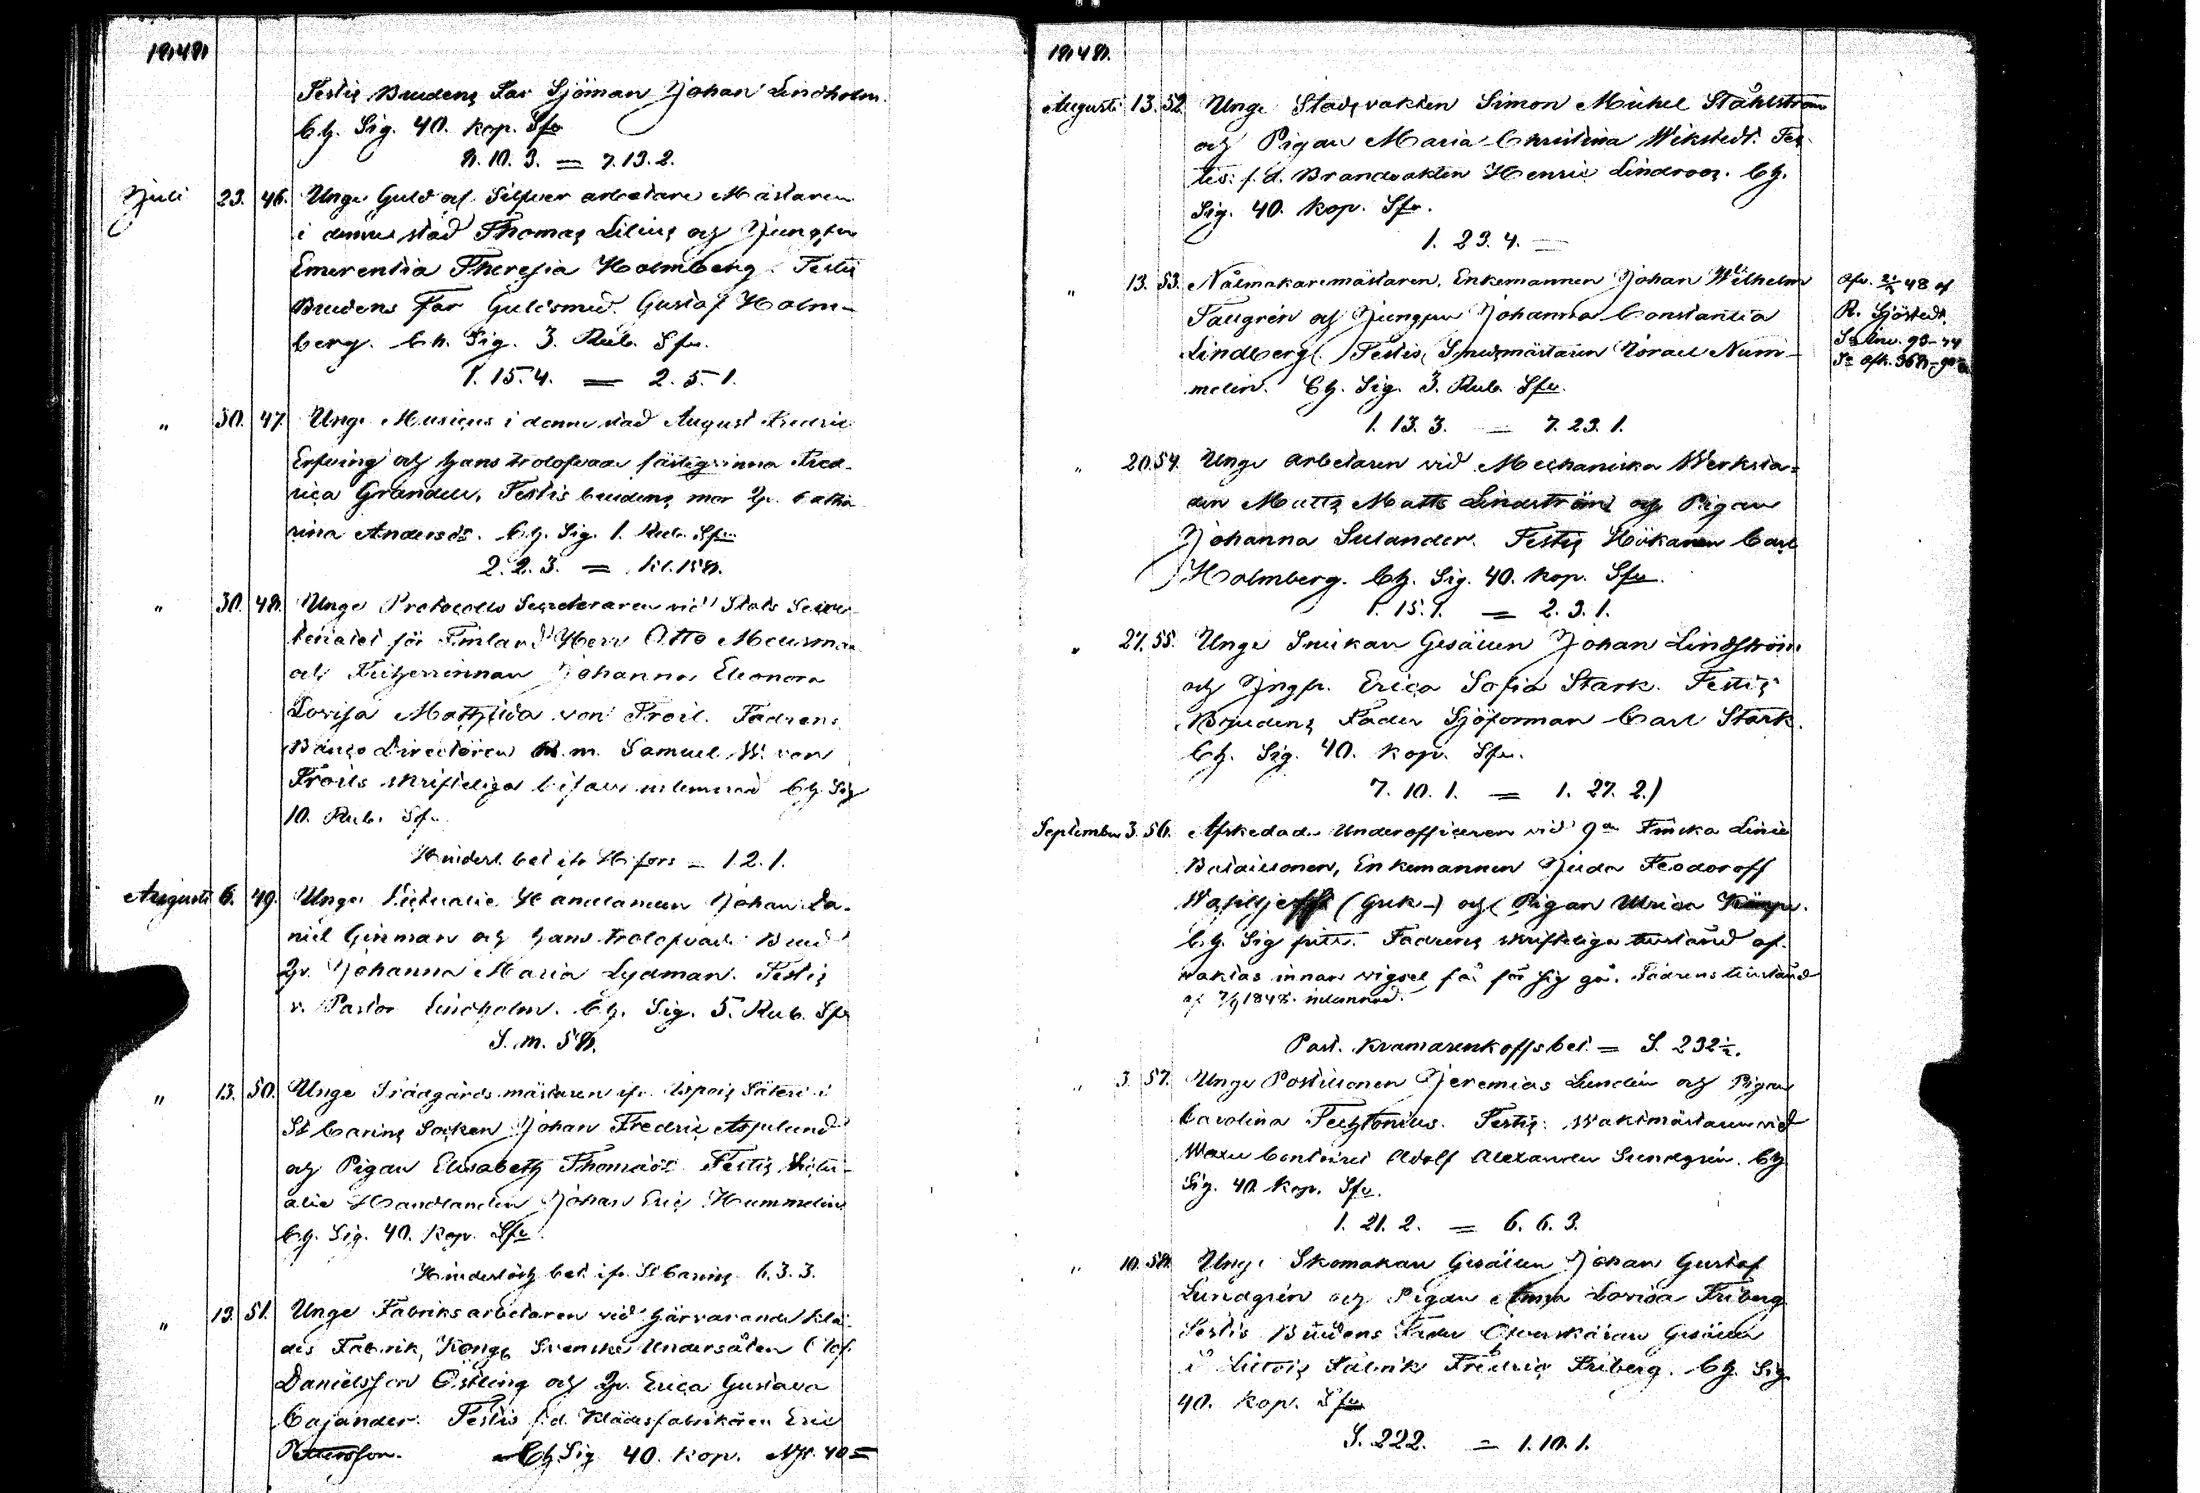 1848
Testis Brudens Far Sjöman Johan Lindholm.
Ch. Sig. 40. kop. Sfr
8. 10. 3. = 7. 13. 2.
Juli 23. 46. Unge Guld och Silfver arbetare Mästaren
i denna stad Thomas Lilius och Jungfrn
Emerentia Theresia Holmberg. Testis
Brudens Far Guldsmed. Gustaf Holm-
berg. Ch. Sig. 3. Rub. Sfr.
1. 15. 4. = 2. 5. 1.
" 30. 47. Unge Musicus i denna stad August Fredric
Erfving och hans trolofvade fästeqvinna Fred-
rica Grandell. Testis brudens mor Jv. Catha
rina Andersd:r. Ch. Sig. 1. Rub. Sfr
2. 2. 3. =
" 30. 48. Unge Protocolls Secreteraren vid Stats Secre-
teriatet för Finland Herr Otto Meurman
och Friherrinnan Johanna Eleonora
Lovisa Mathilda von Troil. Fadrens
Banco Directören m. m. Samuel W. von
Troils skrifteliga bifall inlemnad Ch. Sig
10. Rub. Sfr.
Hindersl. bet. ifr. H:fors = 1. 2. 1.
Augusti 6. 49. Unge Victualie Handlanden Johan Da-
niel Ginman och hans trolofvade Brud
Jv. Johanna Maria Lydman. Testis
v. Pastor Lindholm. Ch. Sig. 5. Rub. Sfr
S. m. 58.
" 13. 50. Unge Trädgårds mästaren ifr. Lspois Säteri i
St Carins Socken Johan Fredric Asplund
och Pigan Elisabeth Thomasd:r Testis Victu-
alie Handlanden Johan Eric Hummelin
Ch. Sig. 40. kop. Sfr
Hinderslösh. bet. ifr. St Carins 6. 3. 3.
" 13. 51. Unge Fabriks arbetaren vid härvarande Klä-
des Fabrik, Kongl. Svenska Undersåten Olof
Danielsson Östling och Jv. Erica Gustava
Cajander. Testis f.d. Klädesfabrikören Eric
Pettersson. Ch. Sig 40. kop.
1848.
Augusti 13. 52. Unge Stadsvakten Simon Michel Ståhlström
och Pigan Maria Christina Wikstedt. Tes-
tis: f. d. Brandvakten Henric Lindroos. Ch.
Sig. 40. kop. Sfr.
1. 23. 4. =
" 13. 53. Nålmakaremästaren, Enkemannen Johan Wilhelm
Tallgrén och Jungfrun Johanna Constantia
Lindberg. Testis Smedmästaren Israel Num-
melin. Ch. Sig. 3. Rub. Sfr.
1. 13. 3. = 7. 23. 1.
R. Sjöstedt.
" 20. 54. Unge arbetaren vid Mechaniska Werksta-
den Matts Matts Lindström och Pigan
Johanna Sulander. Testis Hökaren Carl
Holmberg. Ch. Sig. 40. kop. Sfr.
1. 15. 1. = 2. 3. 1.
" 27. 55. Unge Snickare Gesällen Johan Lindström
och Jngfr. Erica Sofia Stark. Testis
Brudens Fader Sjöforman Carl Stark.
Ch. Sig. 40. kop. Sfr.
7. 10. 1. = 1. 27. 2.)
September 3. 56. Afskedade Underofficeren vid 9de Finska Linie
Bataillonen, Enkemannen Juda Feodoroff
Wasiljeff (Guk-) och Pigan Ulrica Kämpe.
Ch. Sig fritt. Fadrens skrifteliga tillstånd af-
waktas innan vigsel få för sig gå. Fadrens tillstånd
af 7/9 1848. inlemnad.
Past. Kramarenkoffs bet. = S. 232½.
" 3. 57. Unge Postillionen Jeremias Lundén och Pigan
Carolina Techtonius. Testis: Waktmästaren vid
Wexel Contoiret Adolf Alexander Sundgrén. Ch.
Sig. 40. kop. Sfr.
1. 21. 2. = 6. 6. 3.
" 10. 58. Unge Skomakare Gesällen Johan Gustaf
Lundgrén och Pigan Anna Lovisa Friberg
Testis Brudens Fader Öfverskärare Gesällen
i Littois Fabrik Fredric Friberg. Ch. Sig
40. kop. Sfr
S. 222. = 1. 10. 1.